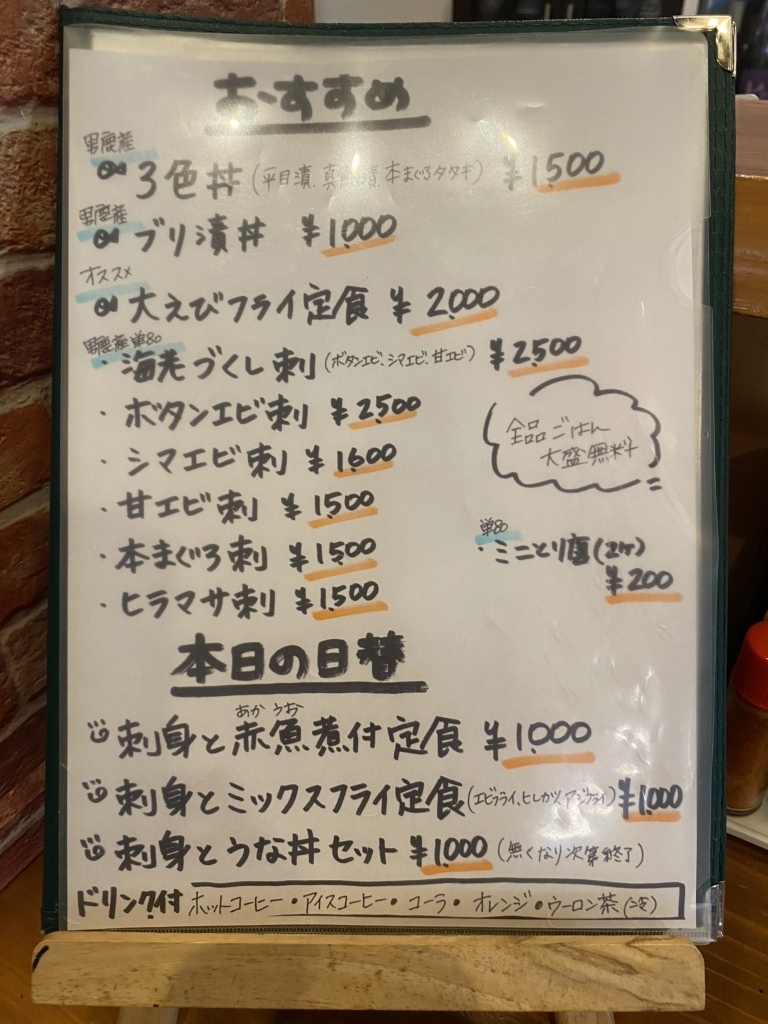 おすすめ
男鹿産
3色丼(平目漬、真 漬、本まぐろタタキ) ¥1,500
男鹿産
ブリ漬丼 ¥1,000
オススメ
大えびフライ定食 ¥2,000
男鹿産 単品
・海老づくし刺(ボタンエビ、シマエビ、甘エビ) ¥2,500
・ボタンエビ刺 ¥2,500
・シマエビ刺 ¥1,600
・甘エビ刺 ¥1,500
・本まぐろ刺 ¥1,500
・ヒラマサ刺 ¥1,500
全品ごはん
大盛無料
単品
・ミニとり唐(2ヶ)
¥200
本日の日替
あか うお
刺身と赤魚煮付定食 ¥1,000
刺身とミックスフライ定食(エビフライ、ヒレカツ、アジフライ) ¥1,000
刺身とうな丼セット ¥1,000 (無くなり次第終了)
ドリンク付 ホットコーヒー・アイスコーヒー・コーラ・オレンジ・ウーロン茶